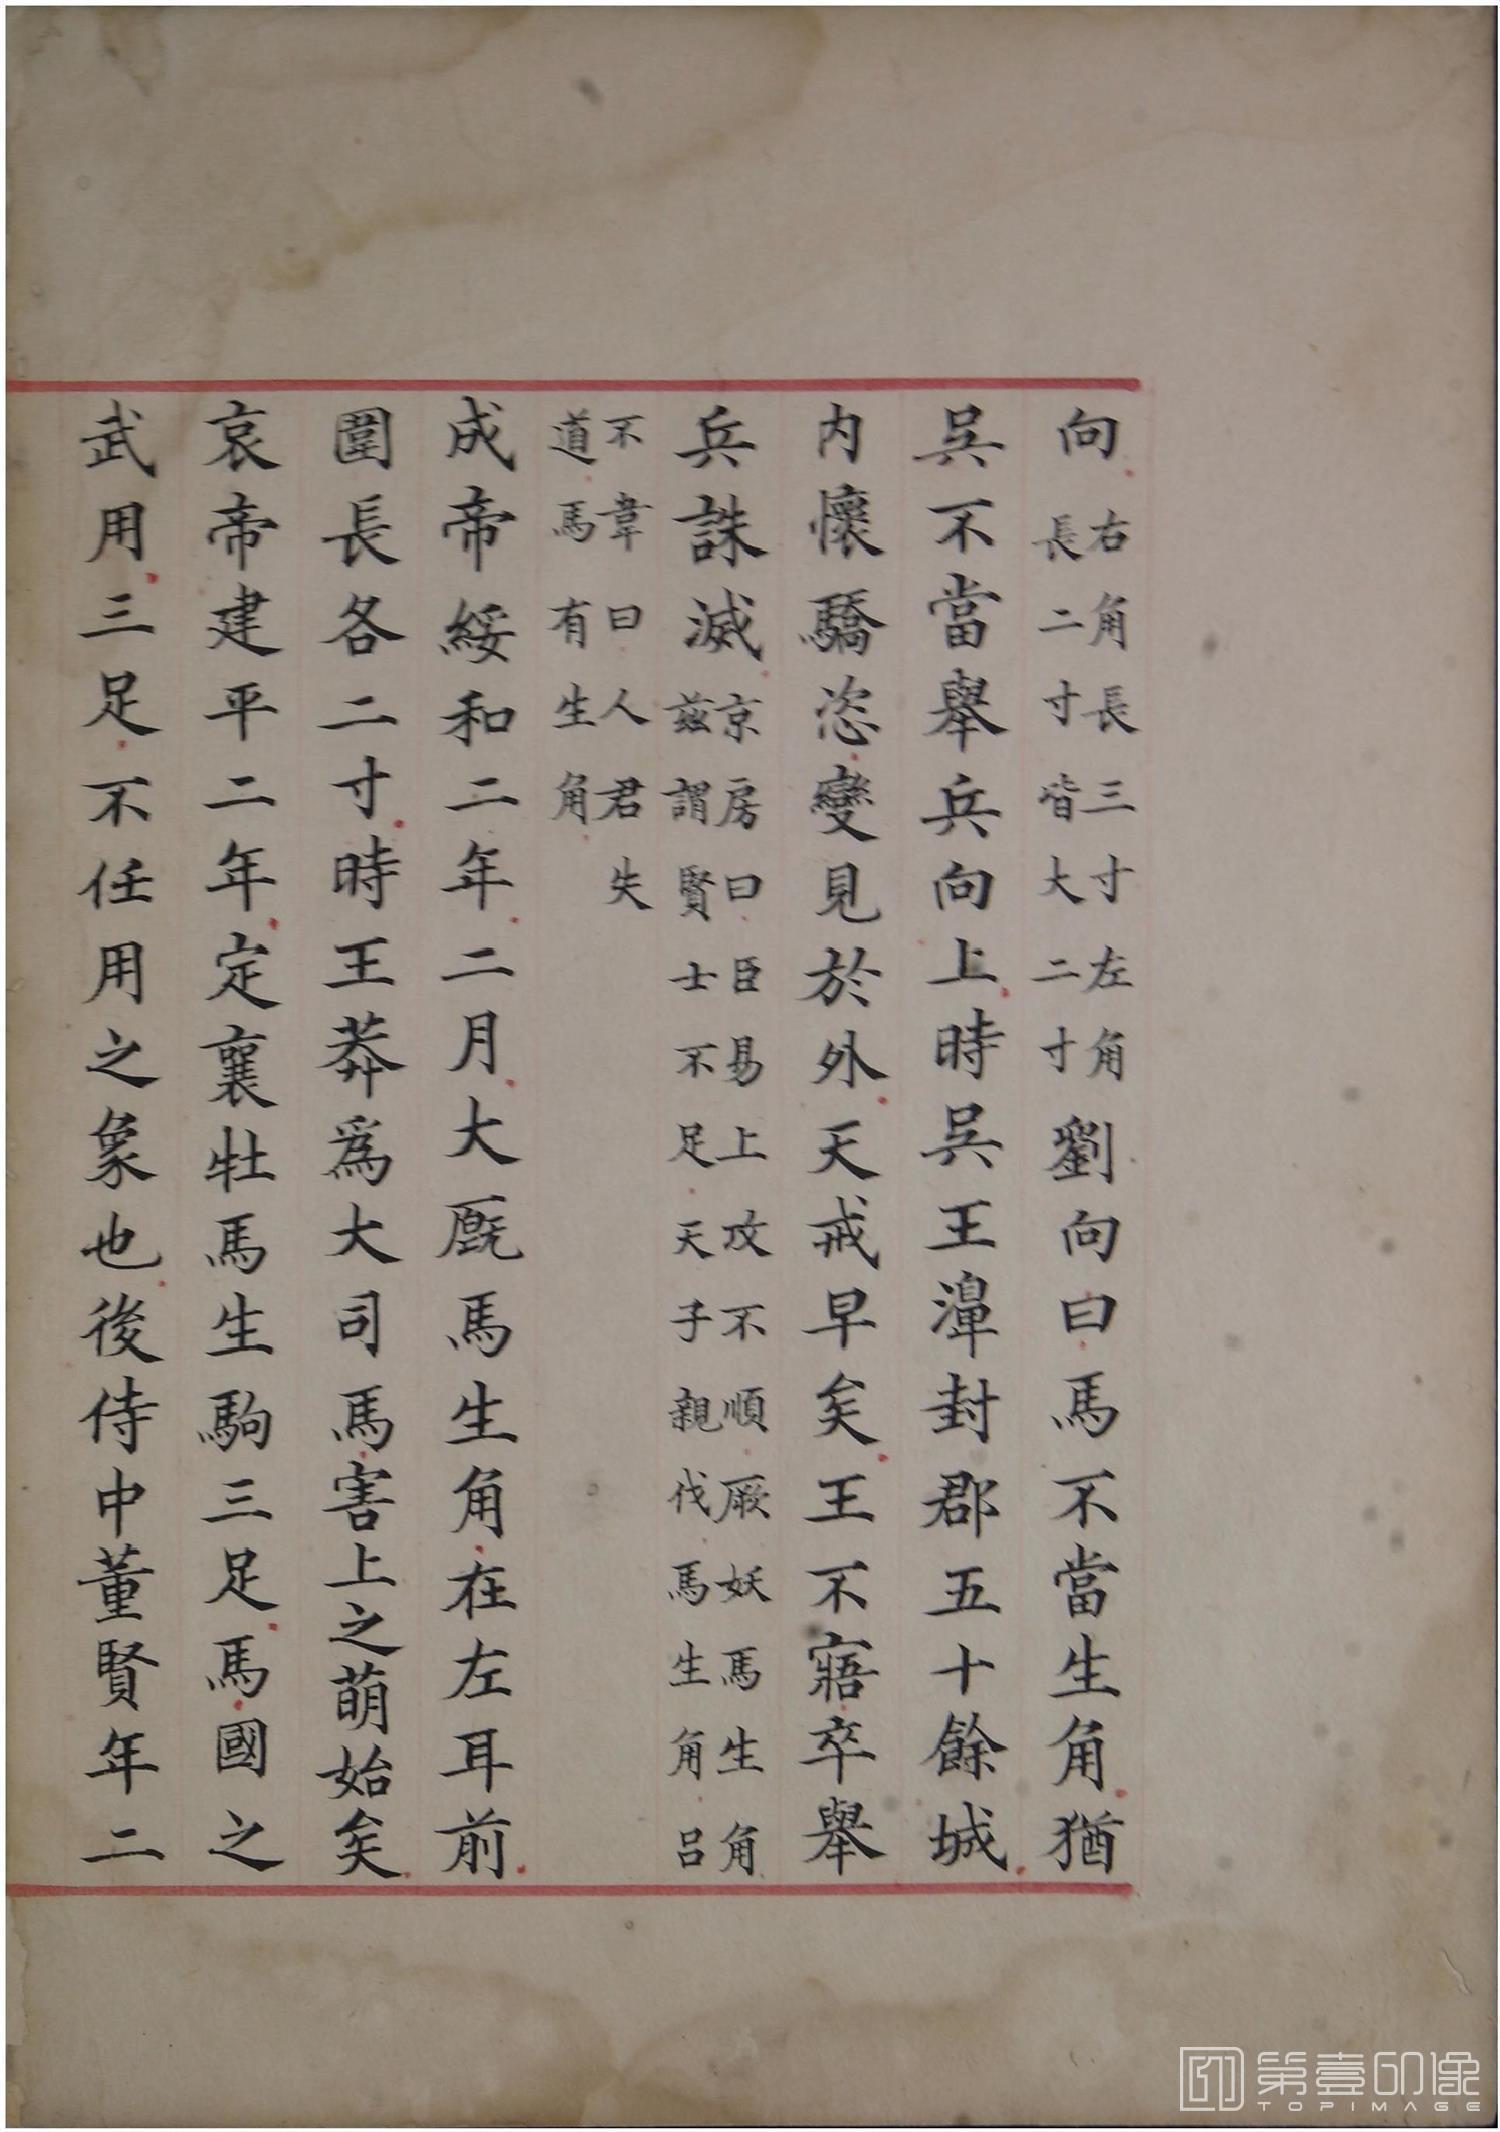 向右角長三寸左角長二寸皆大二寸劉向曰馬不當生角猶
吳不當舉兵向上時吳王濞封郡五十餘城
内懷驕恣變見於外天戒早矣王不寤卒舉
兵誅滅京房曰臣易上攻不順厥妖馬生角茲謂賢士不足天子親伐馬生角呂
不韋曰人君失道馬有生角
成帝綏和二年二月大廐馬生角在左耳前
圍長各二寸時王莽爲大司馬害上之萌始矣
哀帝建平二年定襄牡馬生駒三足馬國之
武用三足不任用之象也後侍中董賢年二
第壹印像
TOPIMAGE